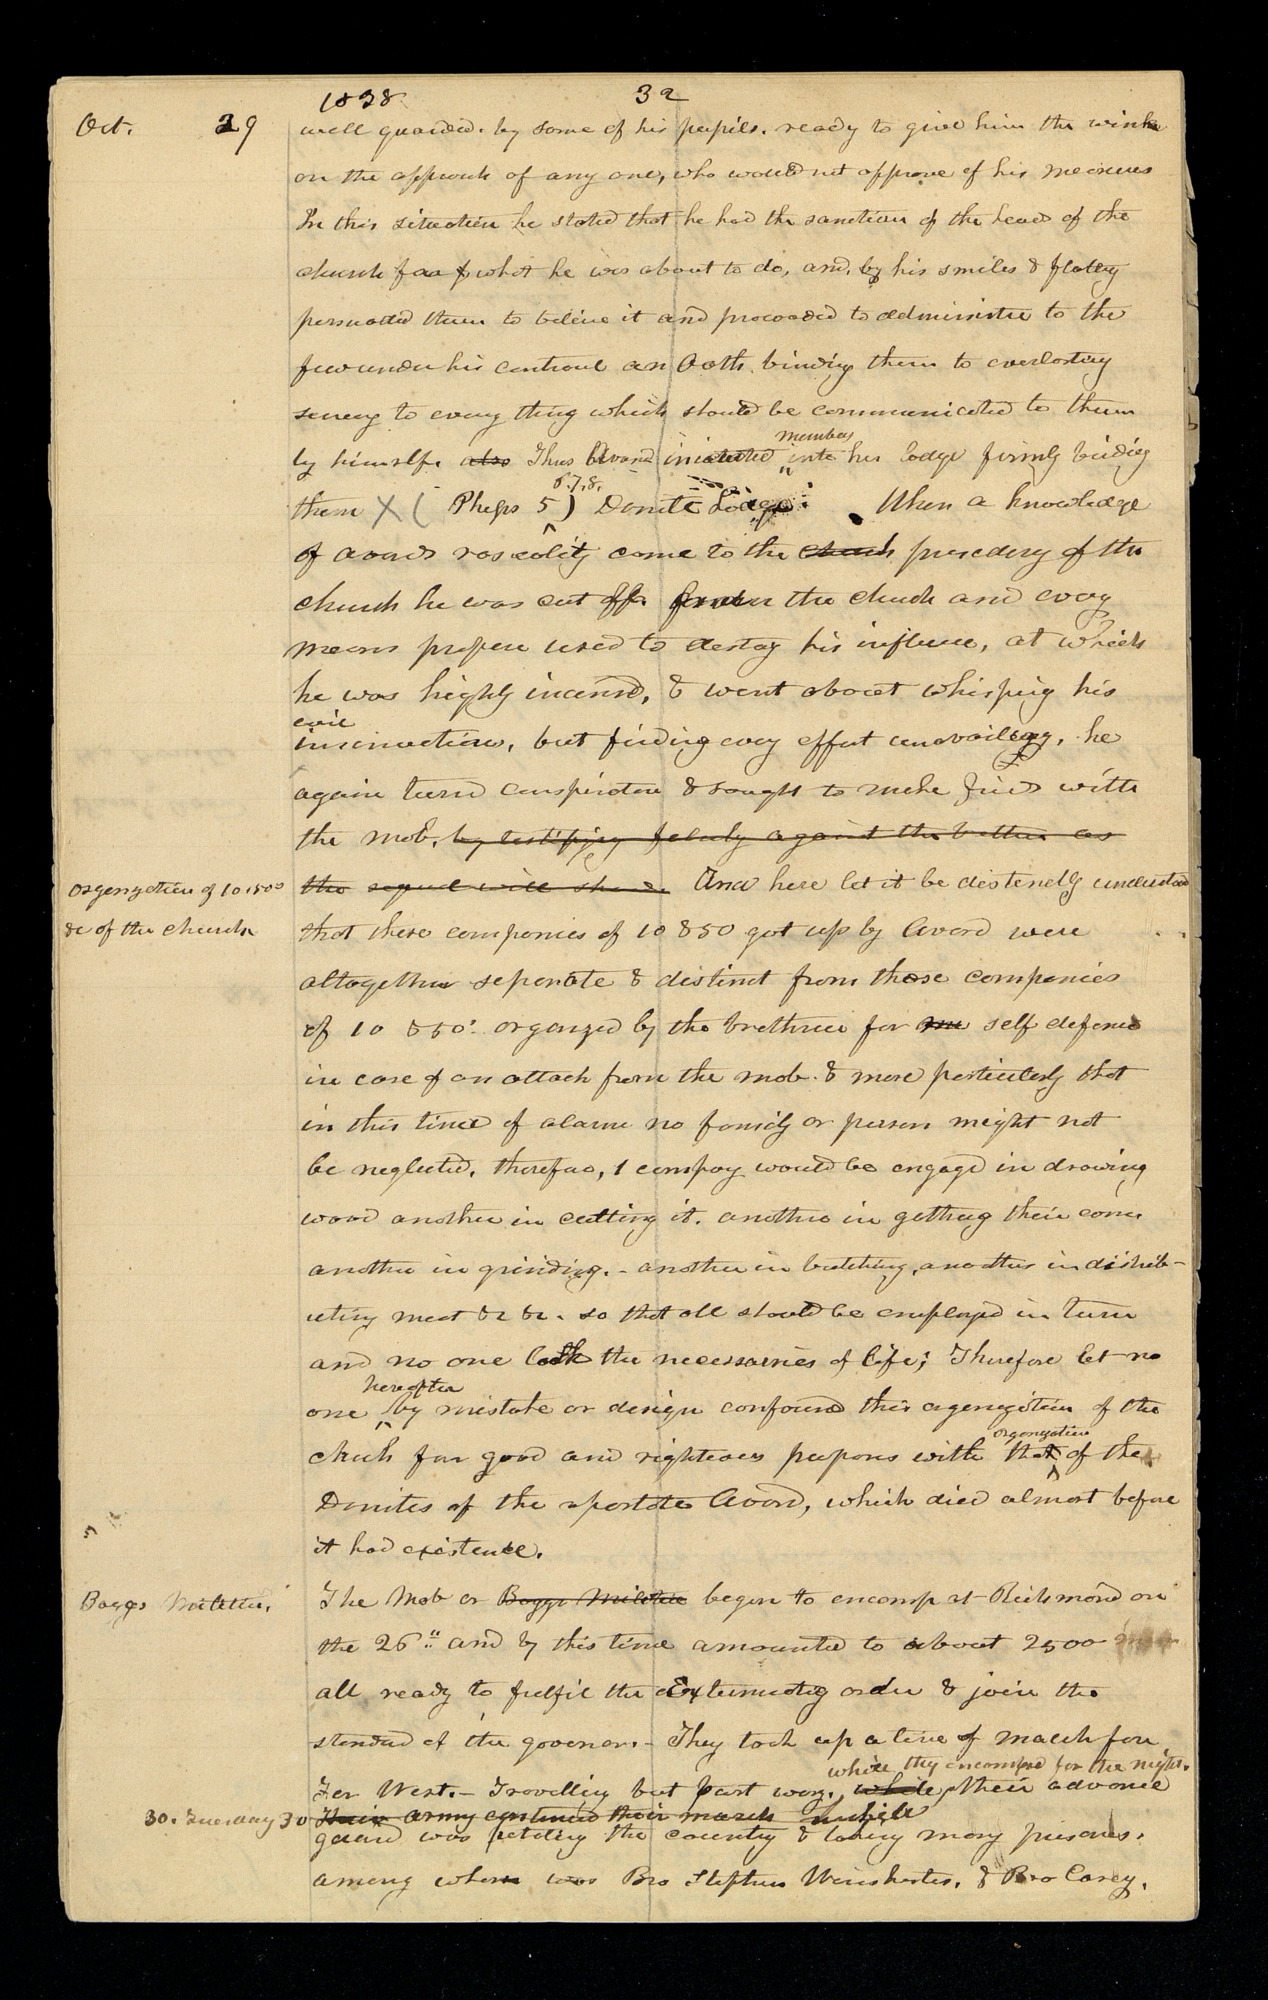 1838 32
Oct. 29 well guarded. by some of his pupils. ready to give him the wink
on the approach of any one, who would not approve of his measures
In this situation he stated that he had the sanction of the heads of the
church for what he was about to do, and, by his smiles & flattery
persuaded them to believe it and proceeded to administer to the
few under his controul an Oath, binding them to everlasting
secrecy to every thing which should be communicated to them
members
by himself. also Thus Avard initiated into his lodge firmly binding
6.7.8.
them X ( Phelps 5 ) Danite Lodge: When a knowledge
of avards rascality came to the church presidency of the
church he was cut off from the church and every
means proper used to destroy his influence, at which
he was highly incensed, & went about whispering his
evil
insinuations, but finding every effort unavailing, he
again turned conspirator & sought to make friends with
the mob. by testifying falsely against the brethren as
organization of 10 & 50s the sequel will show. And here let it be distinctly understood
&c of the church that these companies of 10 & 50 got up by Avard were
altogether separate & distinct from those companies
of 10 & 50s organized by the brethren for self defence
in case of an attack from the mob. & more particularly that
in this time of alarm no family or person might not
be neglected. therefore, 1 company would be engaged in drawing
wood another in cutting it. another in getting their corn
another in grinding. - another in butchering, another in distrib-
uting meat &c &c. so that all should be employed in turn
and no one lack the necessaries of life; Therefore let no
hereafter
one by mistake or design confound this organization of the
organization
church for good and righteous purposes with that of the
Danites of the apostate Avard, which died almost before
it had existence.
Boggs Militia. The Mob or Boggs Militia began to encamp at Richmond on
the 26" and by this time amounted to about 2500
all ready to fulfil the Exterminating order & join the
standard of the governor. - They took up a line of march for
where they encamped for the night.
Far West. - Travelling but part way, while their advance
30. Tuesday 30 Their army continued their march while
guard was patroling the country & taking many prisoners.
among whom was Bro Stephen Winchester, & Bro Carey,